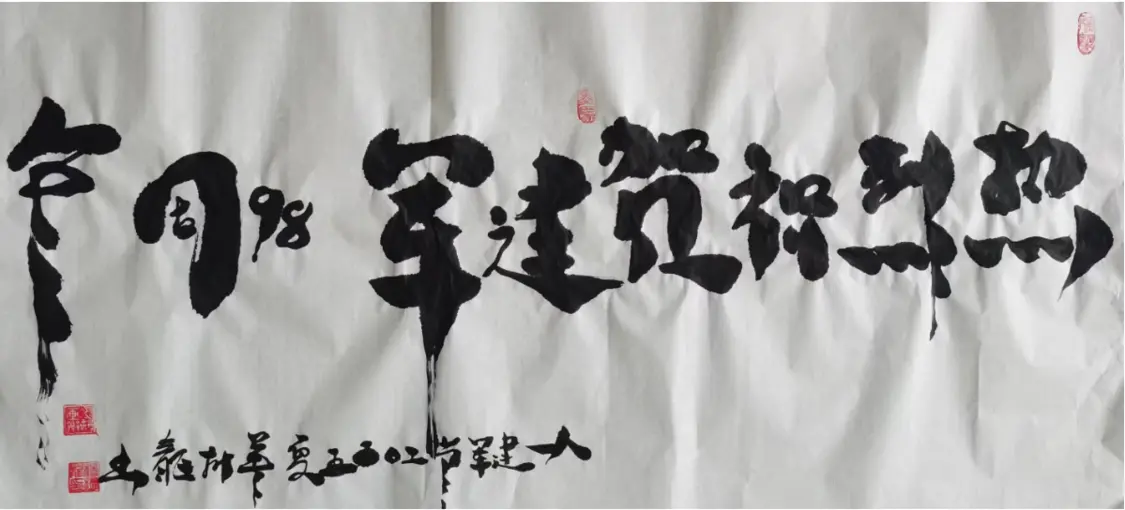 热烈祝贺建军98周年
八一建军节二〇二五夏 书